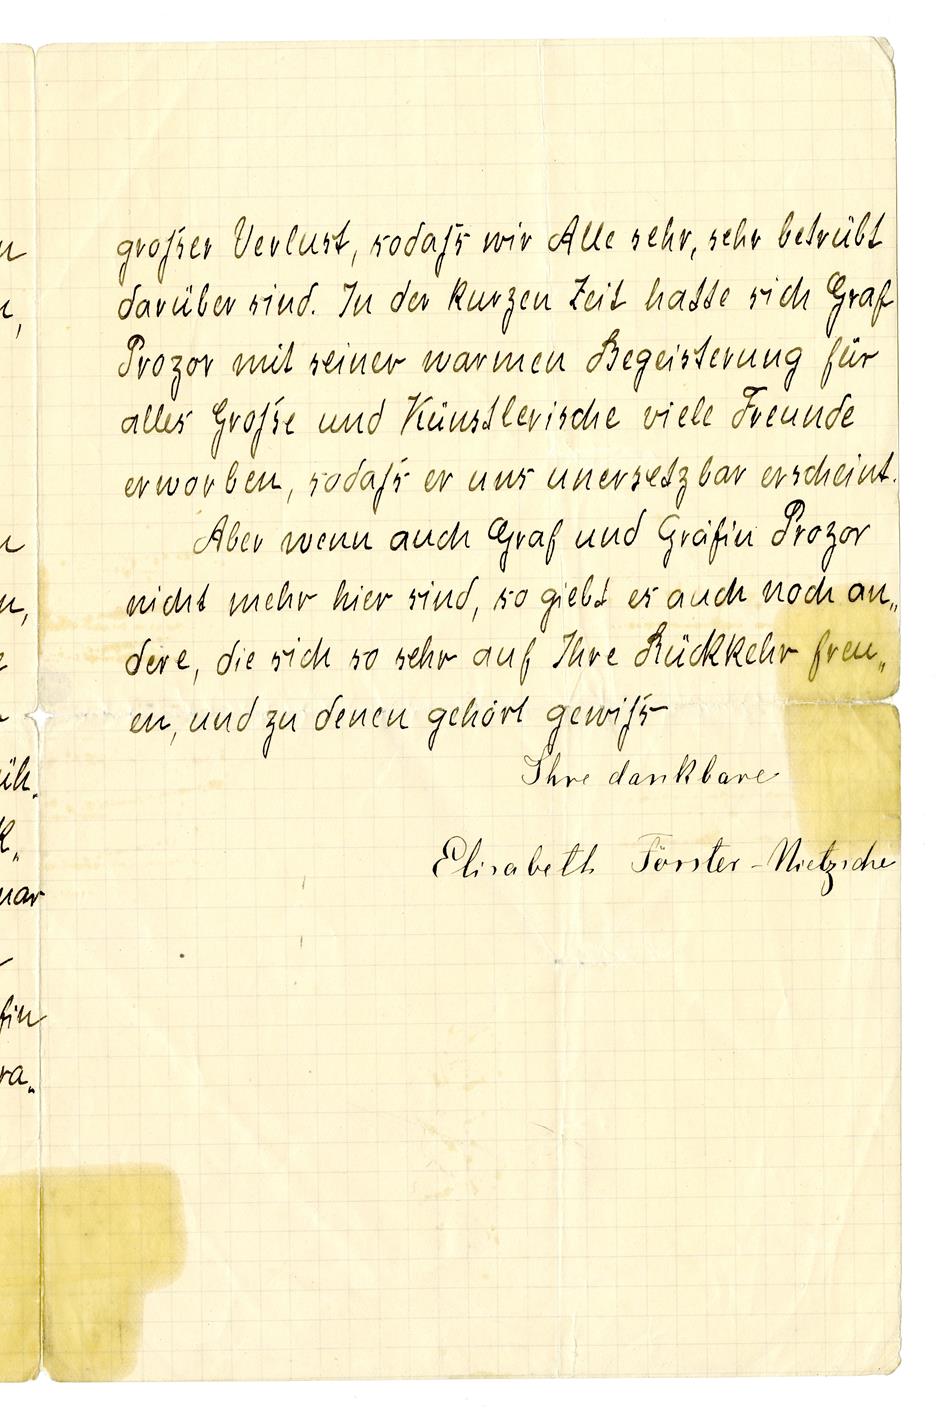 großer Verlust, sodaß wir Alle sehr, sehr betrübt
darüber sind. In der kurzen Zeit hatte sich Graf
Prozor mit seiner warmen Begeisterung für
alles Große und Künstlerische viele Freunde
erworben, sodaß er uns unersetzbar erscheint.
Aber wenn auch Graf und Gräfin Prozor
nicht mehr hier sind, so giebt es auch noch an„
dere, die sich so sehr auf Ihre Rückkehr freu„
en, und zu denen gehört gewiß
Ihre dankbare
Elisabeth Förster-Nietzsche